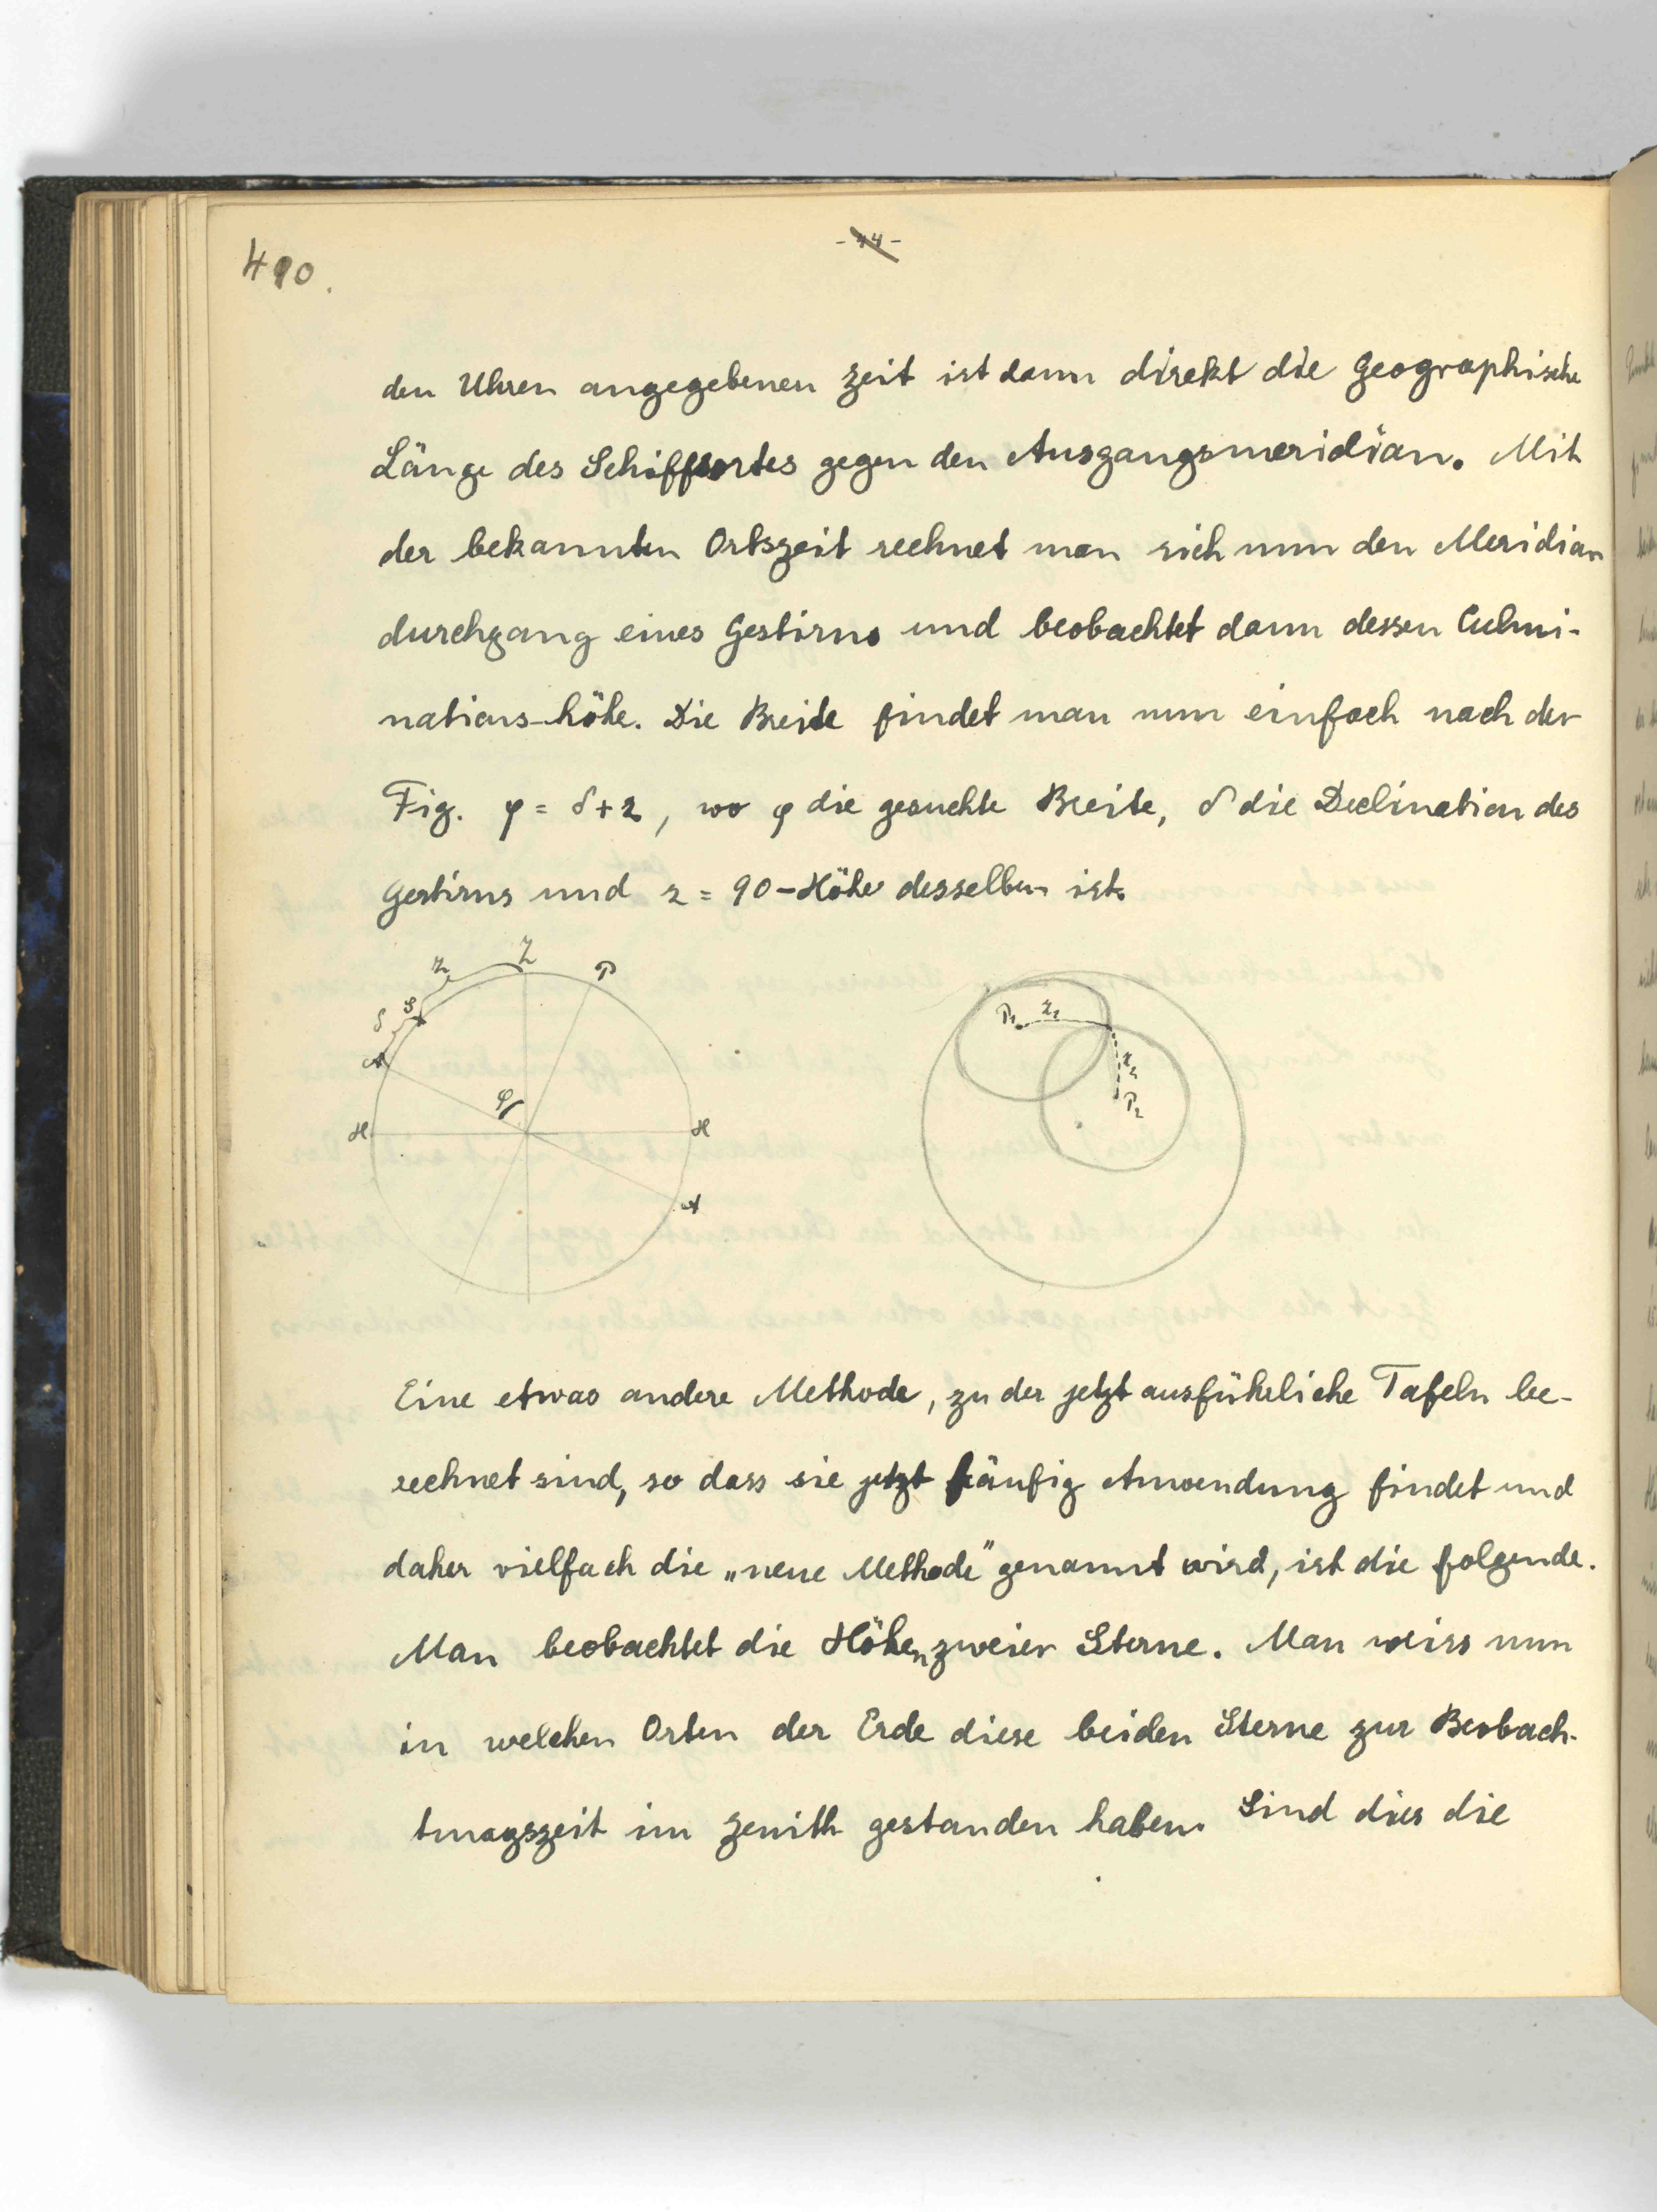 490.
-44-
den Uhren angegebenen Zeit ist dann direkt die geographische
Länge des Schiffsortes gegen den Ausgangsmeridian. Mit
der bekannten Ortszeit rechnet man sich nun den Meridian
durchgang eines Gestirns und beobachtet dann dessen Culmi-
nations-höhe. Die Breite findet man nun einfach nach der
Fig. φ = δ + z, wo φ die gesuchte Breite, δ die Declination des
Gestirns und z = 90 - Höhe desselben ist.
z Z P
δ S
A
φ
H H
A
P₁ z₁
z₂
P₂
Eine etwas andere Methode, zu der jetzt ausführliche Tafeln be-
rechnet sind, so dass sie jetzt häufig Anwendung findet und
daher vielfach die „neue Methode" genannt wird, ist die folgende.
Man beobachtet die Höhen zweier Sterne. Man weiss nun
in welchen Orten der Erde diese beiden Sterne zur Beobach-
tungszeit im Zenith gestanden haben. Sind dies die